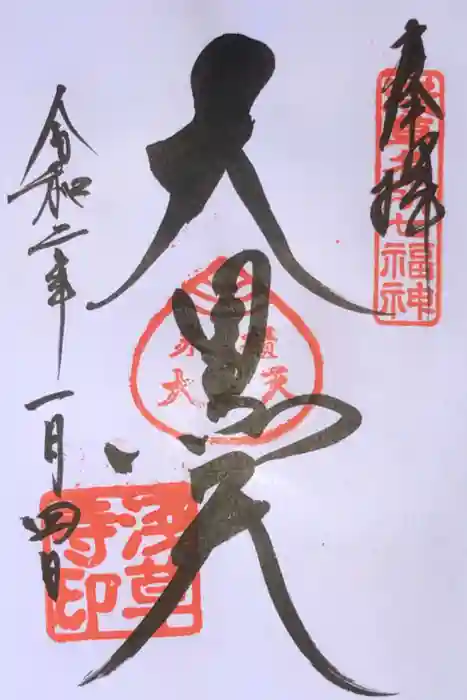 奉拝
浅草名所七福神
大黒天
米櫃
大黒天
令和二年
一月四日
浅草
寺印